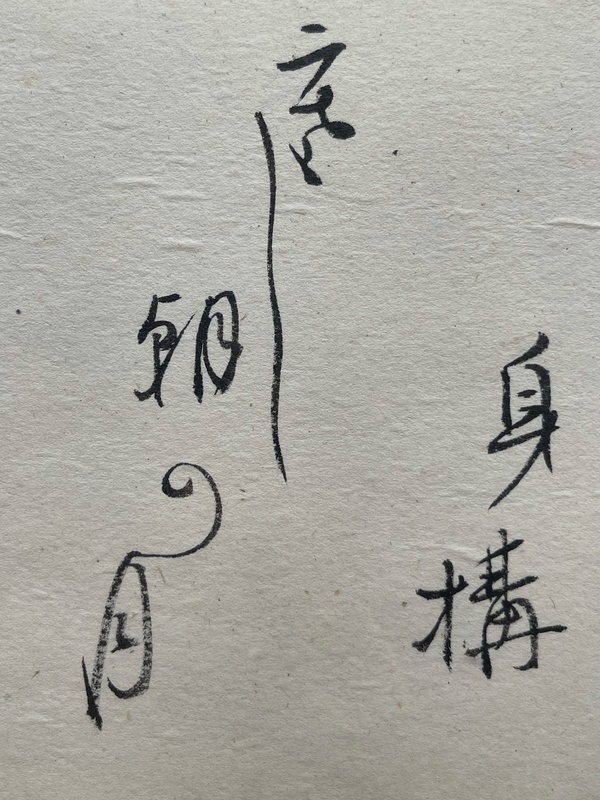 身構
朝の月